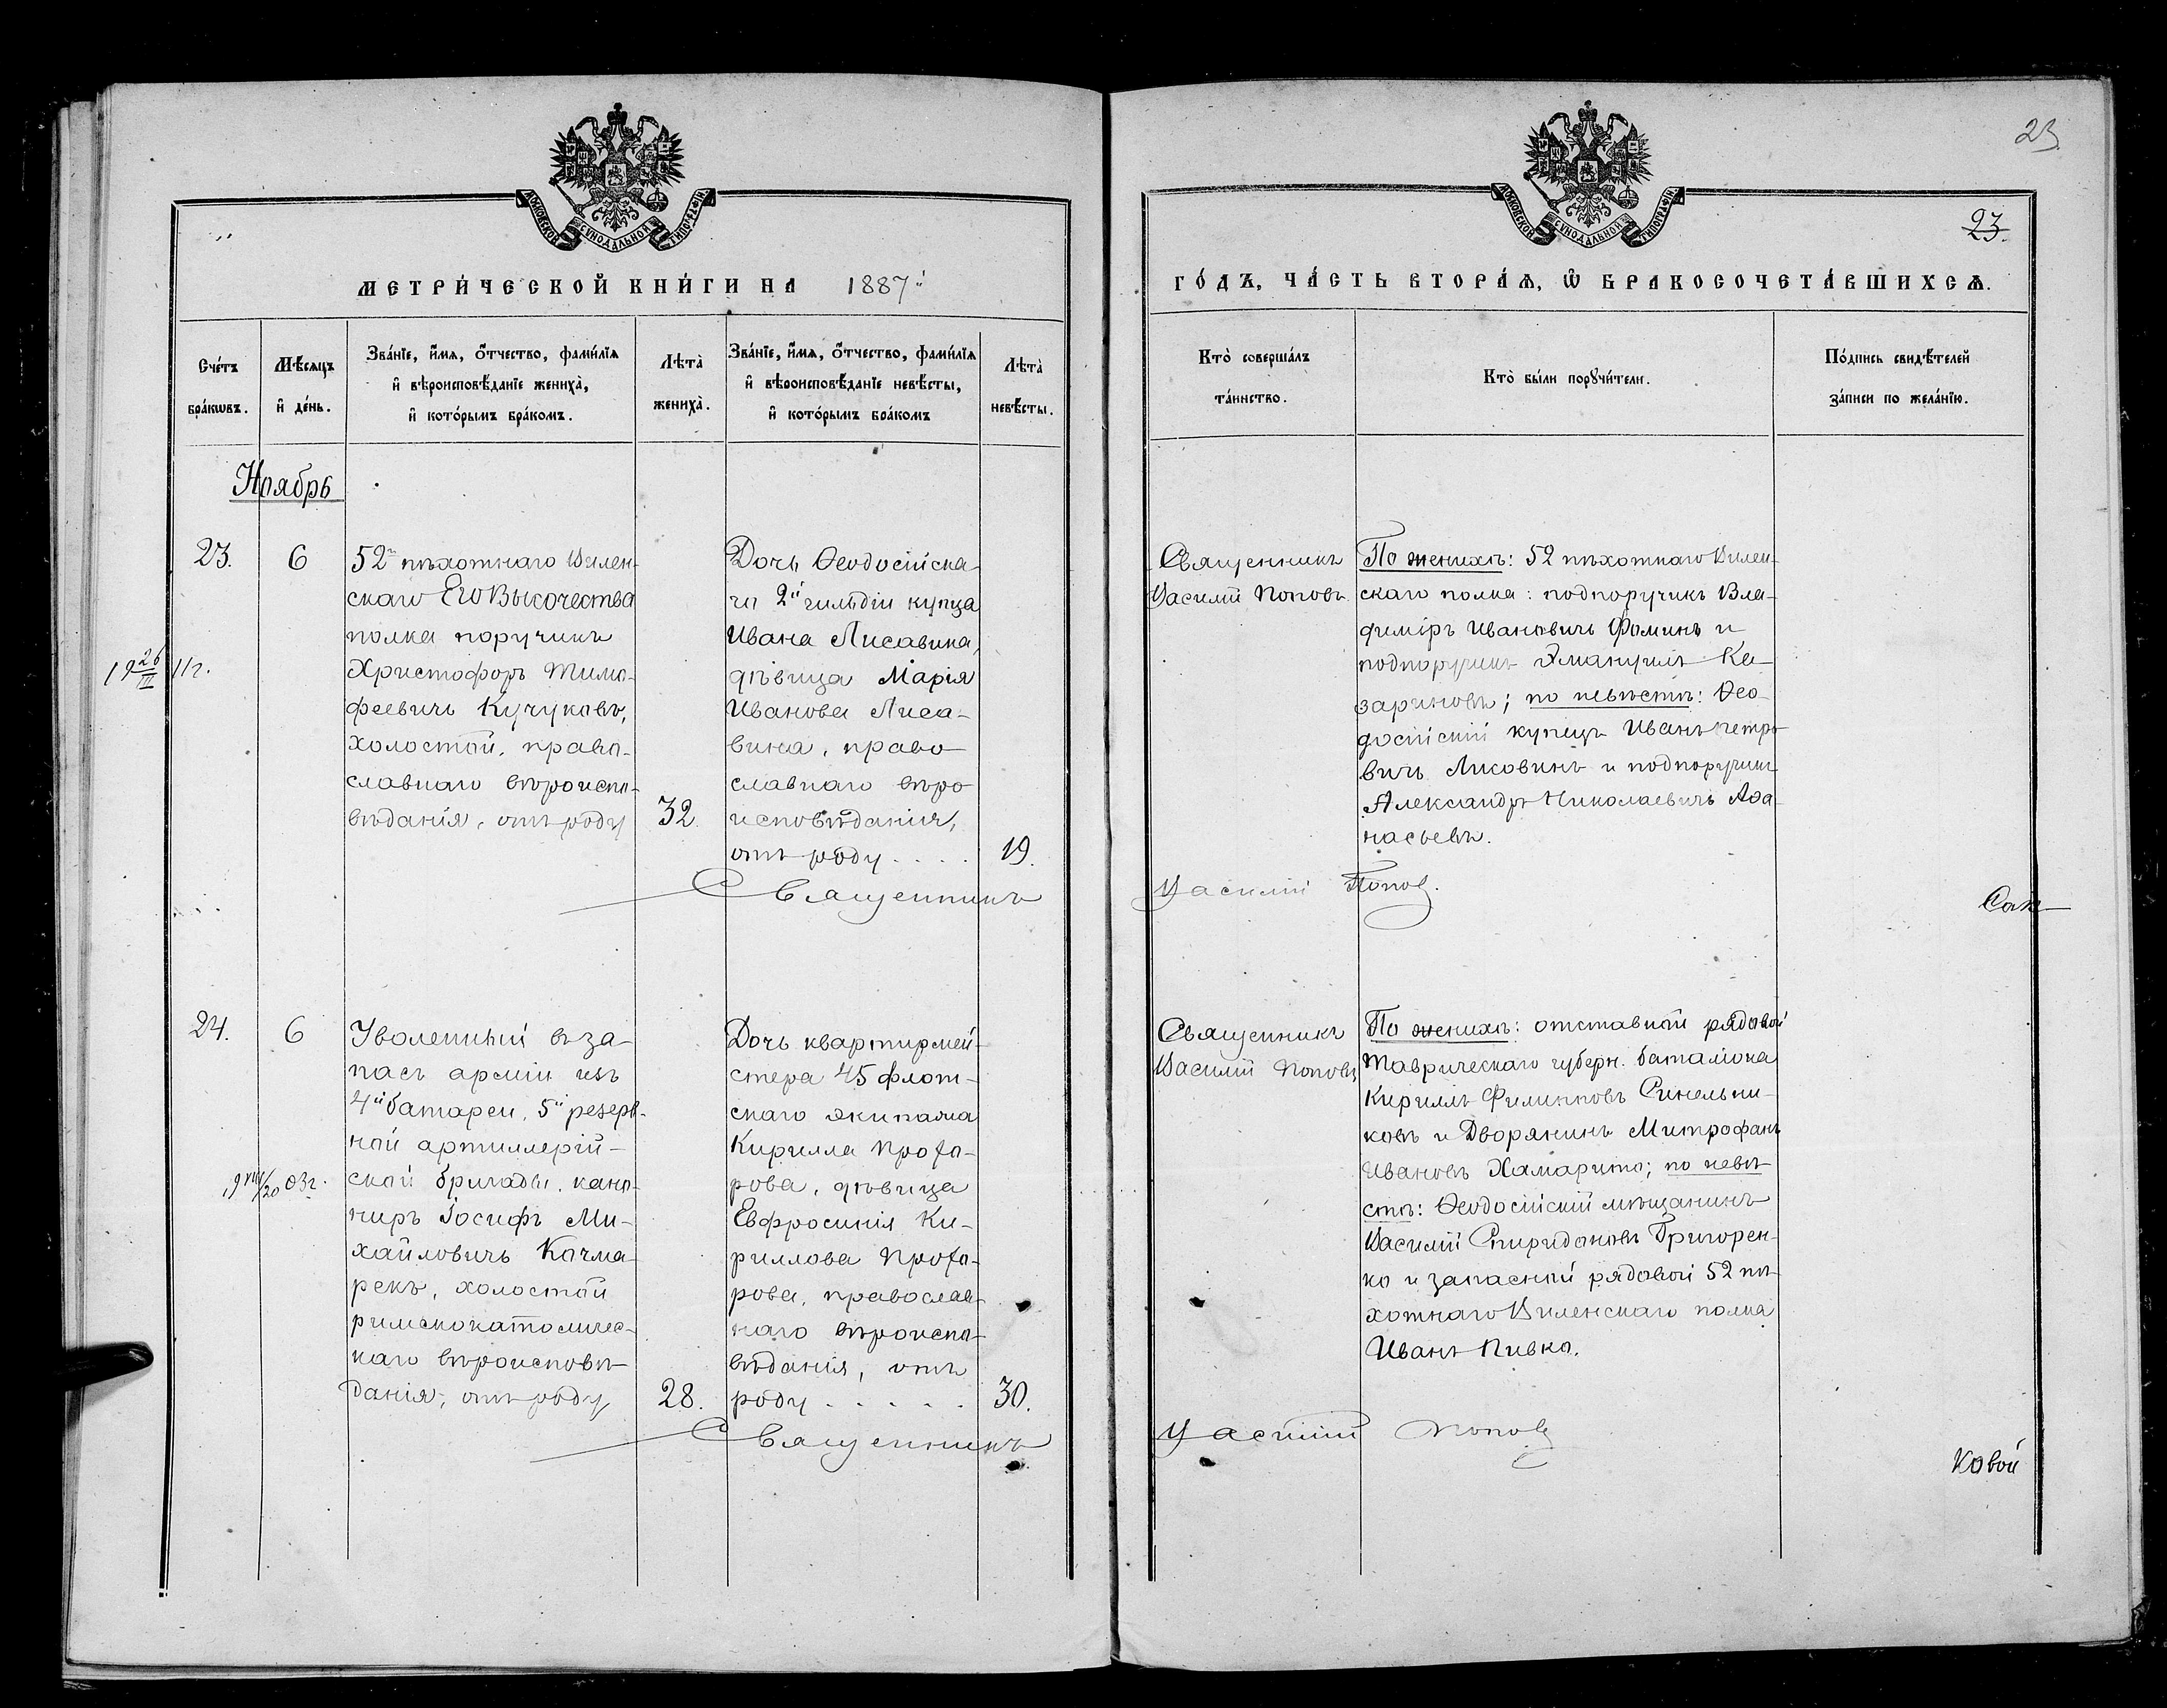 МОСКОВСКОЙ СУНОДАЛЬНОЙ ТИПОГРАФІИ.
МЕТРИ́ЧЕСКОЙ КНИ́ГИ НА 1887й
Сче́тъ бра́кωвъ.
Мѣ́сяцъ и҆ де́нь.
Зва́нїе, и҆́мѧ, ѻ҆́тчество, фами́лїѧ
и҆ вѣроисповѣ́данїе жениха̀,
и҆ кото́рымъ бра́комъ.
Лѣта̀
жениха̀.
Зва́нїе, и҆́мѧ, ѻ҆́тчество, фами́лїѧ
и҆ вѣроисповѣ́данїе невѣ́сты,
и҆ кото́рымъ бра́комъ
Лѣта̀
невѣ́сты.
Ноябрь
23.
6
52го пѣхотнаго Вилен-
скаго Его Высочества
полка поручикъ
Христофоръ Тимо-
феевичъ Кучуковъ,
холостой, право-
славнаго вѣроиспо-
вѣданія, отъ роду
32.
Дочь Ѳеодосійска-
го 2й гильдіи купца
Ивана Лисавина,
дѣвица Марія
Иванова Лиса-
вина, право-
славнаго вѣро
исповѣданія,
отъ роду . . . .
19.
19 26/III 11г.
Священникъ
24.
6
Уволенный въ за-
пасъ арміи изъ
4й батареи, 5й резерв-
ной артиллерій-
ской бригады, кано-
ниръ Іосифъ Ми-
хайловичъ Качма-
рекъ, холостой
римскокатоличес-
каго вѣроисповѣ-
данія, отъ роду
28.
Дочь квартирмей-
стера 45 флот-
скаго экипажа
Кирилла Прохо-
рова, дѣвица
Евфросинія Ки-
риллова Прохо-
рова, православ-
наго вѣроиспо-
вѣданія, отъ
роду . . . . .
30.
19 VIII/20 03г.
Священникъ
23
23.
МОСКОВСКОЙ СУНОДАЛЬНОЙ ТИПОГРАФІИ.
ГО́ДЪ, ЧА́СТЬ ВТОРА́Ѧ, Ѽ БРАКОСОЧЕТА́ВШИХСѦ.
Кто̀ соверша́лъ
та́инство.
Кто̀ бы́ли порꙋчи́тели.
По́дпись свидѣ́телей
за́писи по жела́нїю.
Священникъ
Василій Поповъ
По женихѣ: 52 пѣхотнаго Вилен-
скаго полка: подпоручикъ Вла-
диміръ Ивановичъ Фоминъ и
подпоручикъ Эмануилъ Ка-
зариновъ; по невѣстѣ: Ѳео-
досійскій купецъ Иванъ Петро-
вичъ Лисовинъ и подпоручикъ
Александръ Николаевичъ Аѳа-
насьевъ.
Василій Попов.
Священникъ
Василій Поповъ
По женихѣ: отставной рядовой
Таврическаго губерн. баталіона
Кириллъ Филипповъ Синельни-
ковъ и Дворянинъ Митрофанъ
Ивановъ Хамарито; по невѣ-
стѣ: Ѳеодосійскій мѣщанинъ
Василій Спиридоновъ Григорен-
ко и запасный рядовой 52 пѣ-
хотнаго Виленскаго полка
Иванъ Пивко.
Василій Попов
ковой